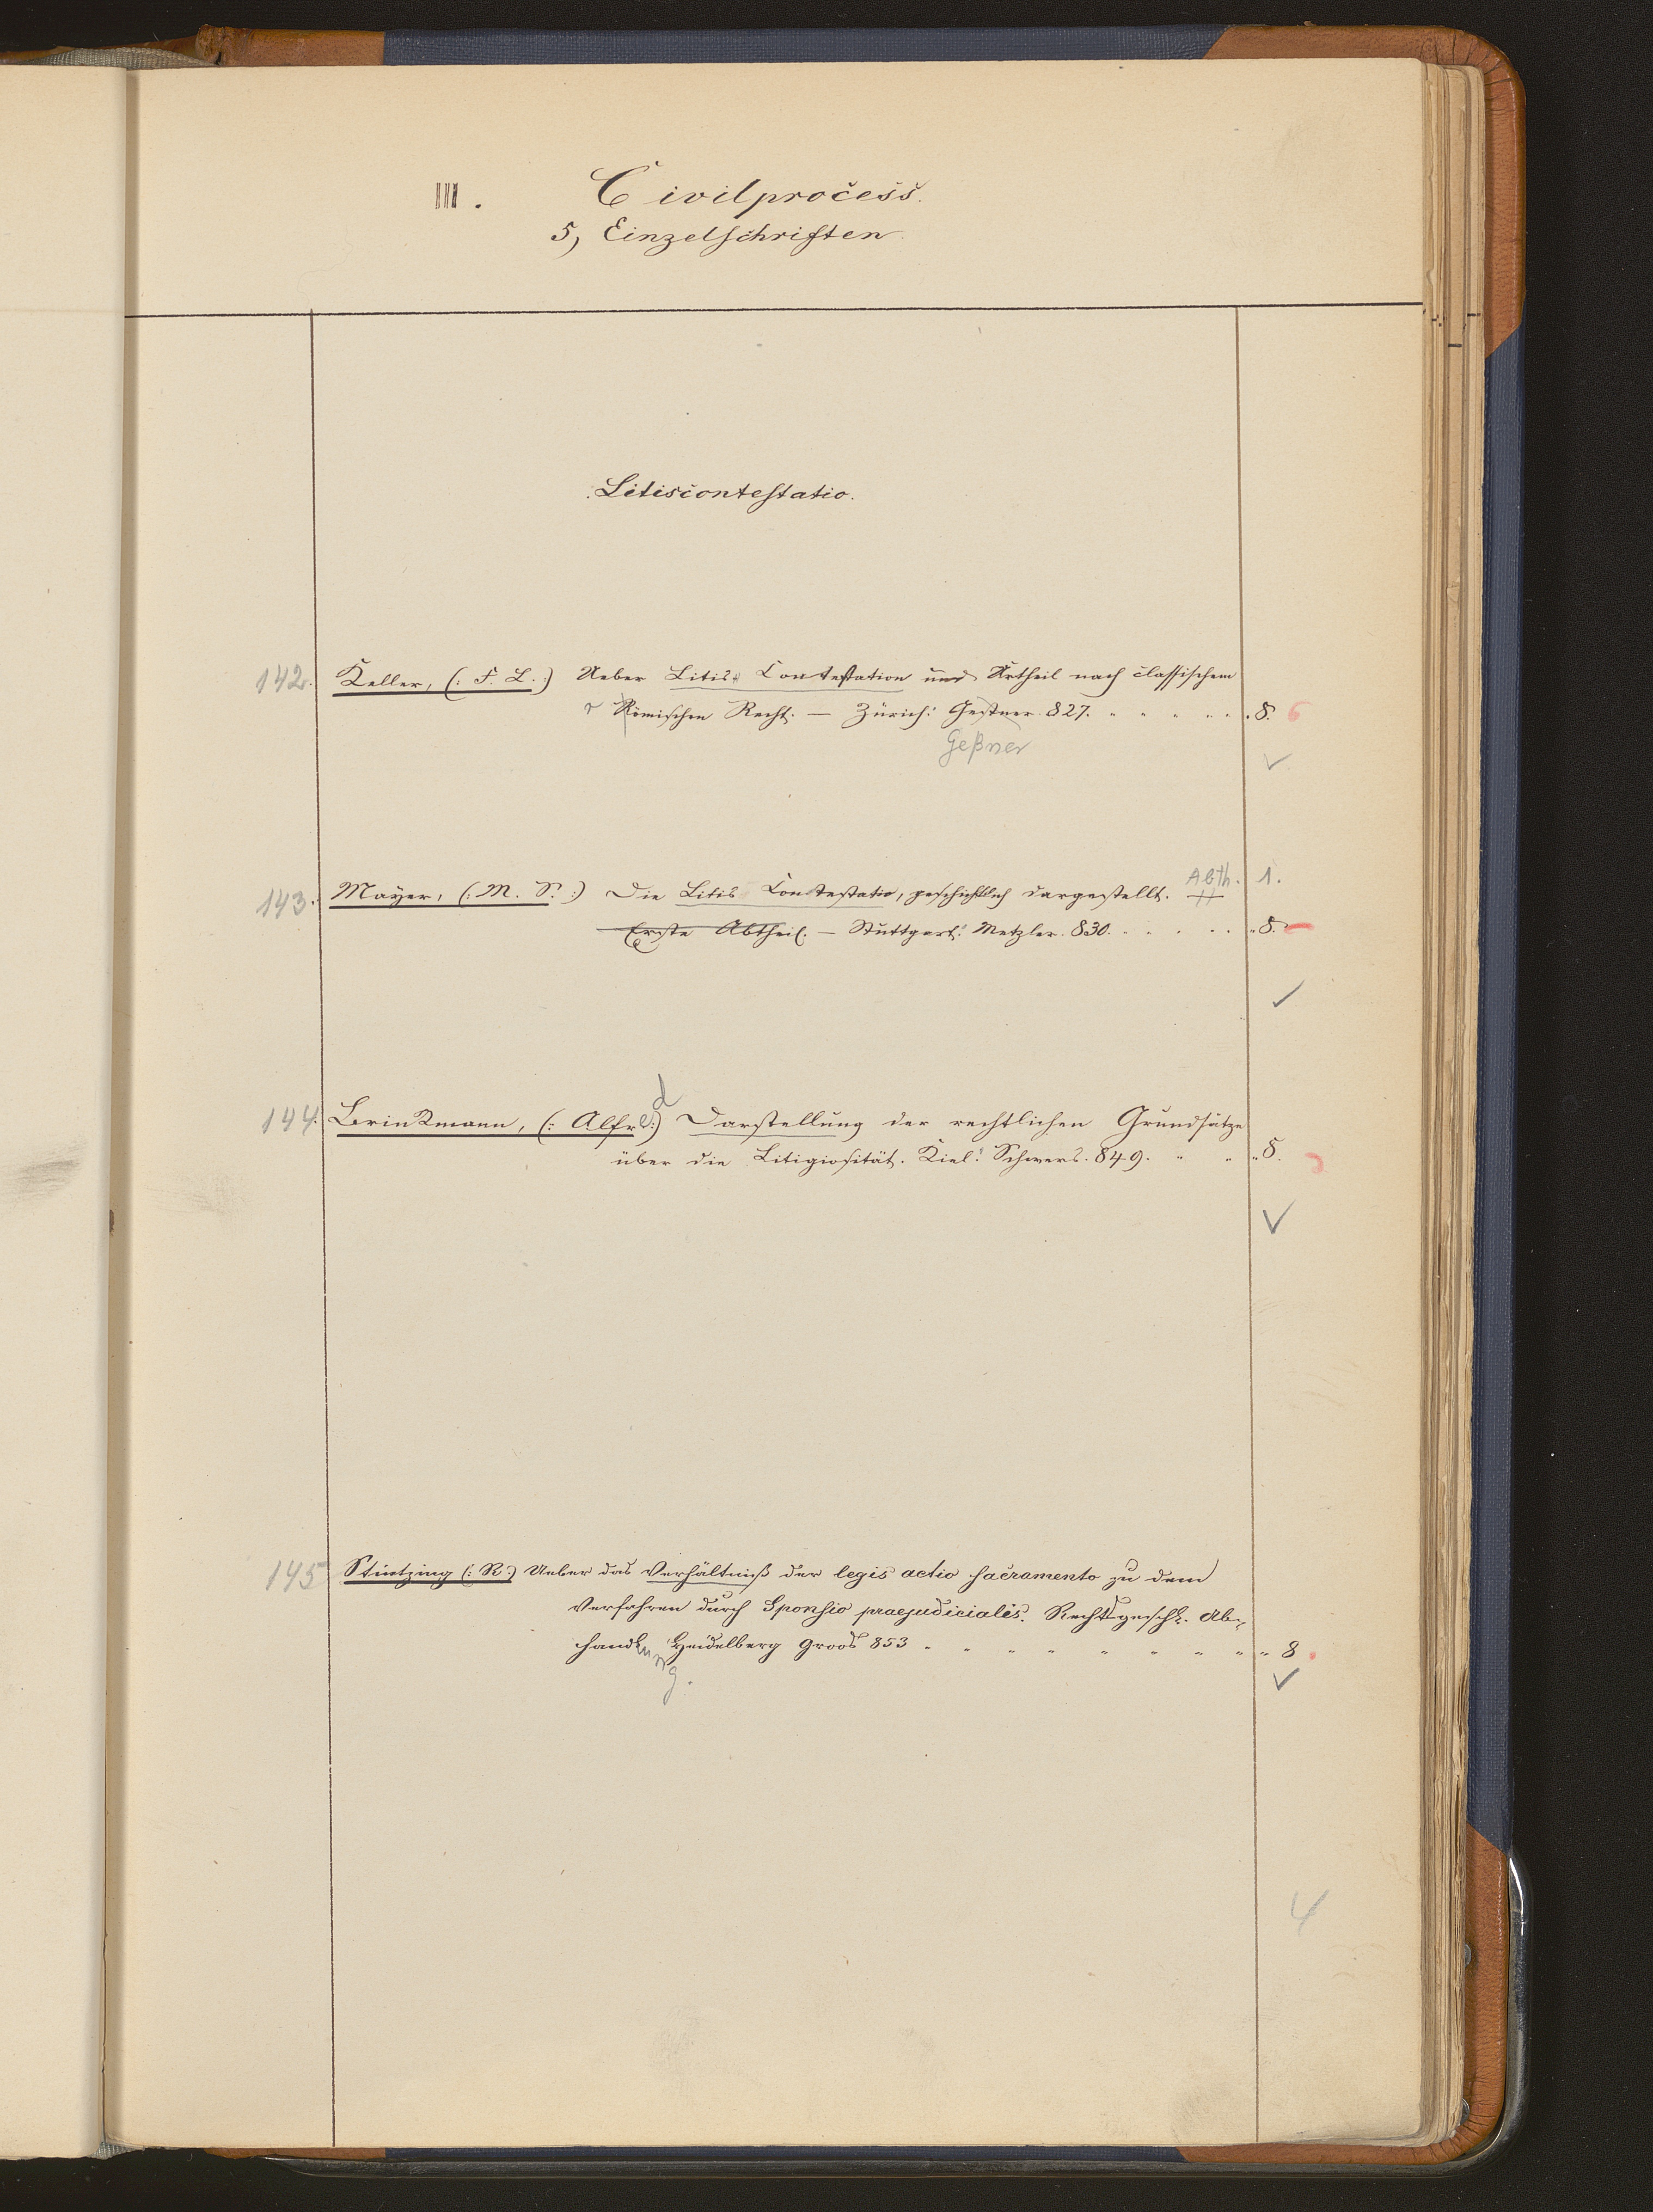 III. Civilprocess.
5, Einzelschriften.
Litiscontestatio.
142. Keller, (: F. L. :) Ueber Litis Contestation und Urtheil nach classischem
r Römischen Recht. — Zürich: Gestner. 827. 8. 6
Geßner
Abth. 1.
143. Mayer, (: M. S. :) Die Litis Contestatio, geschichtlich dargestellt.
Erste Abtheil. — Stuttgart: Metzler. 830. 8.
d
144. Brinkmann, (: Alfre :) Darstellung der rechtlichen Grundsätze
über die Litigiosität. Kiel: Schwers. 849. 8.
145 Stintzing (: R :) Ueber das Verhältniß der legis actio sacramento zu dem
Verfahren durch Sponsio praejudicialis. Rechtsgeschl. Ab-
handlung. Heidelberg Groos 853 8
4